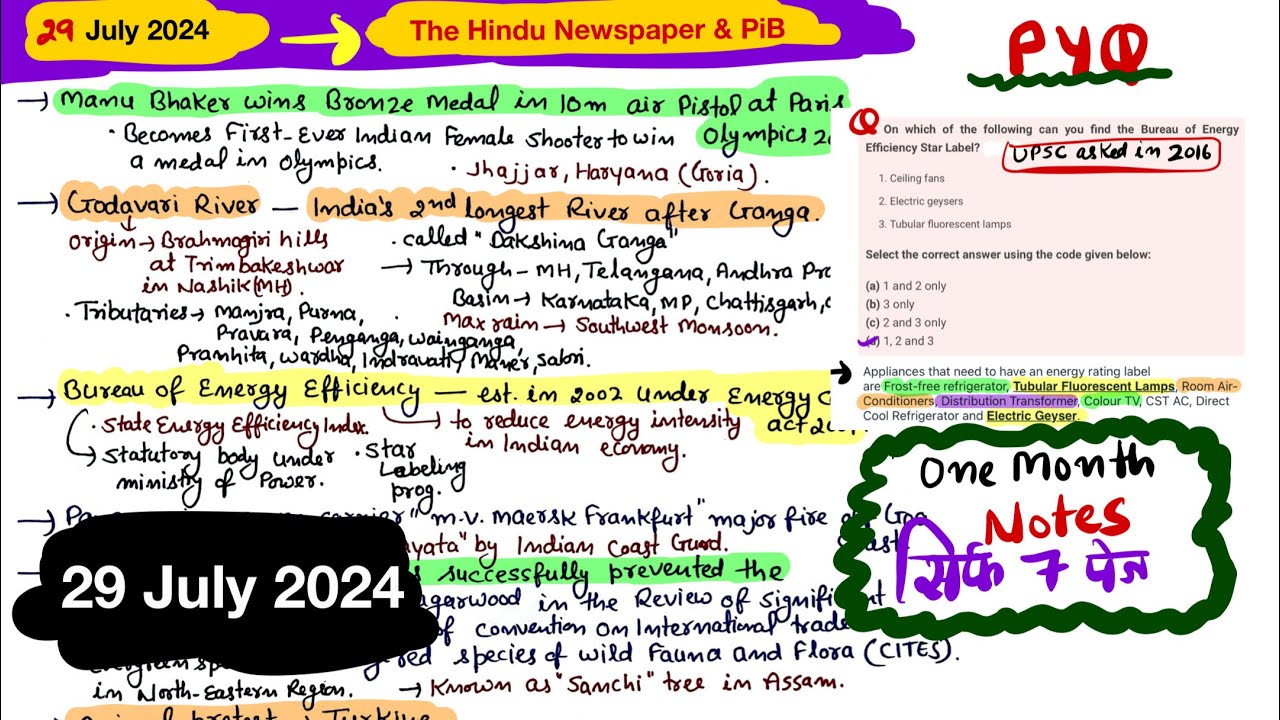 29 July 2024 → The Hindu Newspaper & PiB
→ Manu Bhaker wins Bronze Medal in 10m air Pistol at Paris
Olympics
· Becomes First-Ever Indian Female Shooter to win
a medal in Olympics.
· Jhajjar, Haryana (Goria).
→ Godavari River — India's 2nd longest River after Ganga.
origin → Brahmagiri hills
at Trimbakeshwar
in Nashik (MH).
· called "Dakshina Ganga"
→ Through - MH, Telangana, Andhra
Basin → Karnataka, MP, Chattisgarh,
Max rain → Southwest Monsoon.
· Tributaries → Manjra, Purna,
Pravara, Penganga, Wainganga,
Pranhita, Wardha, Indravati, Maner, Sabri.
→ Bureau of Energy Efficiency — est. in 2002 under Energy
act
· State Energy Efficiency Index.
→ Statutory body under
ministry of Power.
· Star
Labeling
prog.
→ to reduce energy intensity
in Indian economy.
→ "m.v. maersk Frankfurt" major fire
by Indian Coast Guard.
successfully prevented the
in the Review of Significant
of convention on International trade
species of wild Fauna and Flora (CITES).
in North-Eastern Region. → Known as "Sanchi" tree in Assam.
29 July 2024
PYQ
Q On which of the following can you find the Bureau of Energy
Efficiency Star Label? UPSC asked in 2016
1. Ceiling fans
2. Electric geysers
3. Tubular fluorescent lamps
Select the correct answer using the code given below:
(a) 1 and 2 only
(b) 3 only
(c) 2 and 3 only
(d) 1, 2 and 3
→ Appliances that need to have an energy rating label
are Frost-free refrigerator, Tubular Fluorescent Lamps, Room Air-
Conditioners, Distribution Transformer, Colour TV, CST AC, Direct
Cool Refrigerator and Electric Geyser.
One Month
Notes
सिर्फ 7 पेज